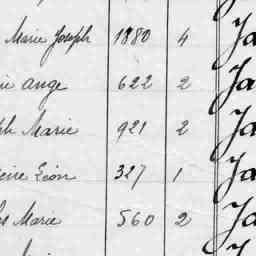 Marie Joseph 1880 4 Ja
ie ange 622 2 Ja
ph Marie 921 2 Ja
Léon 327 1 Ja
es Marie 560 2 Ja